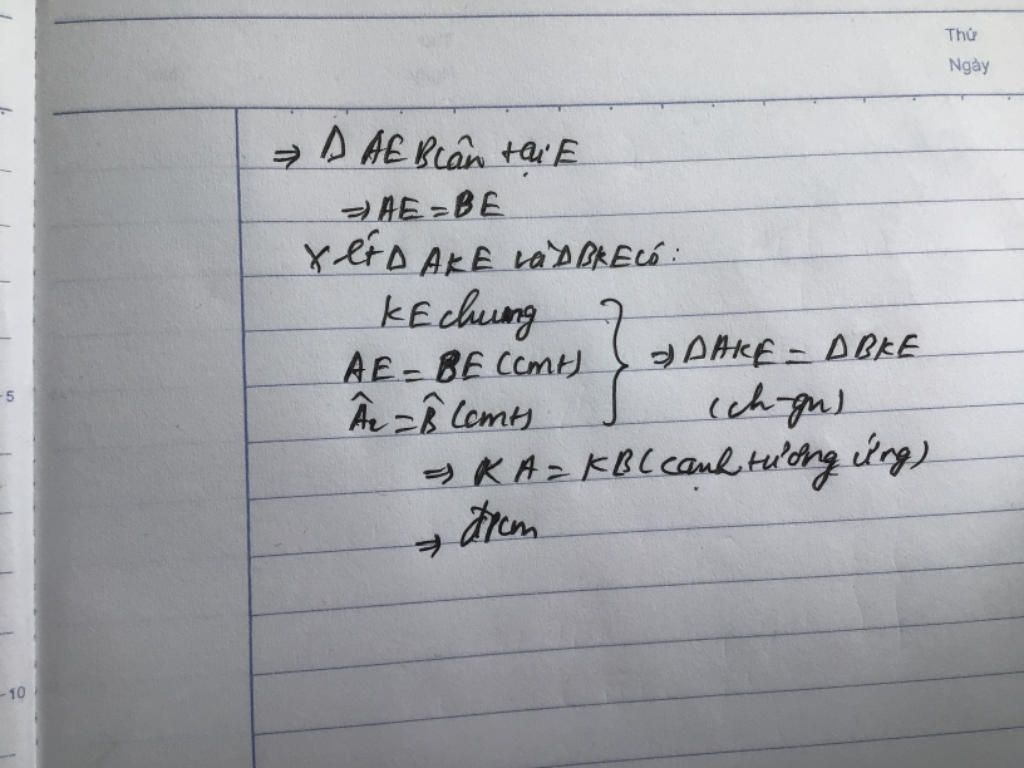 Thứ
Ngày
⇒ Δ AEB cân tại E
⇒ AE = BE
Xét Δ AKE và ΔBKE có:
KE chung
AE = BE (cmt)
⇒ ΔAKE = ΔBKE
Â₂ = B̂ (cmt)
(ch-gn)
⇒ KA = KB (cạnh tương ứng)
⇒ đpcm
5
10